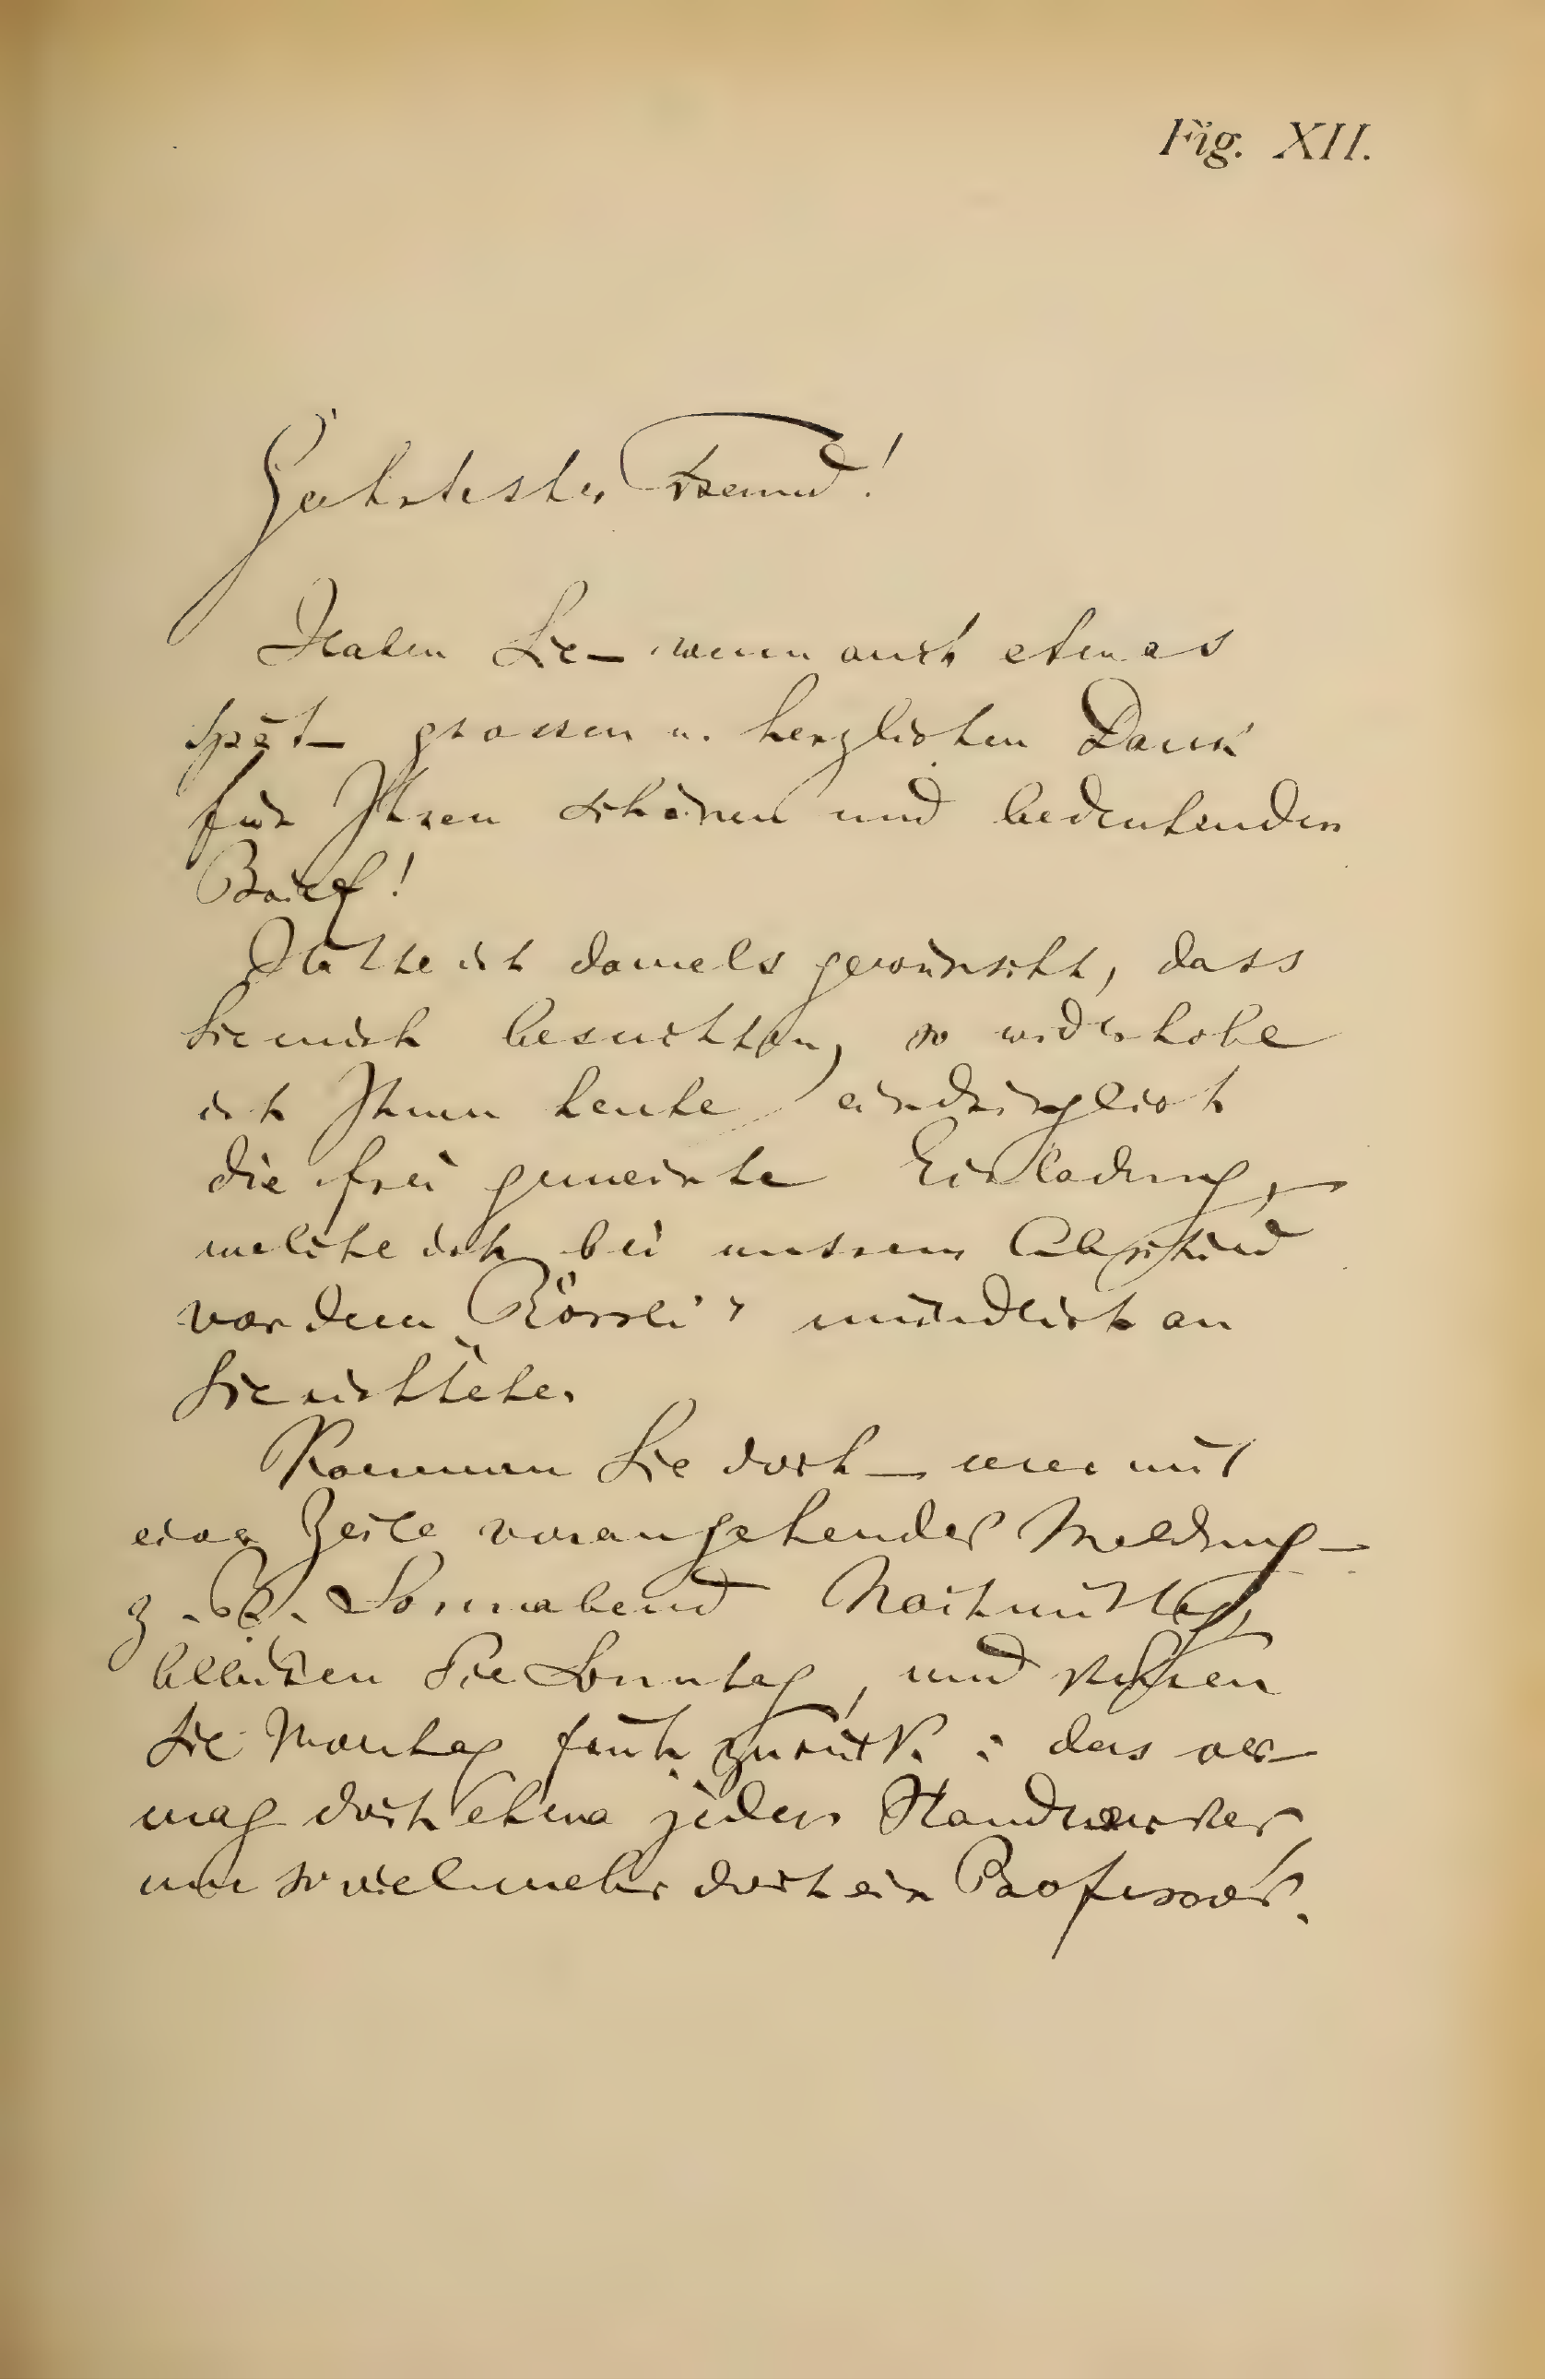 Fig. XII.
Geehrtester Freund!
Haben Sie – wenn auch etwas
spät – grossen u. herzlichen Dank
für Ihren schönen und bedeutenden
Brief!
Hatte ich damals gewünscht, dass
Sie mich besuchten, so widerhole
ich Ihnen heute eindringlich
die frei gemeinte Einladung,
welche ich bei unsrem Abschied
vor dem „Rössli" mündlich an
Sie richtete.
Kommen Sie doch – mit
einer Zeile vorangehender Meldung –
z. B. Sonnabend Nachmittag,
bleiben Sie Sonntag, und
Sie Montag früh zurück: das ver-
mag doch etwa jeder Handwerker,
um so vielmehr doch ein Professor.